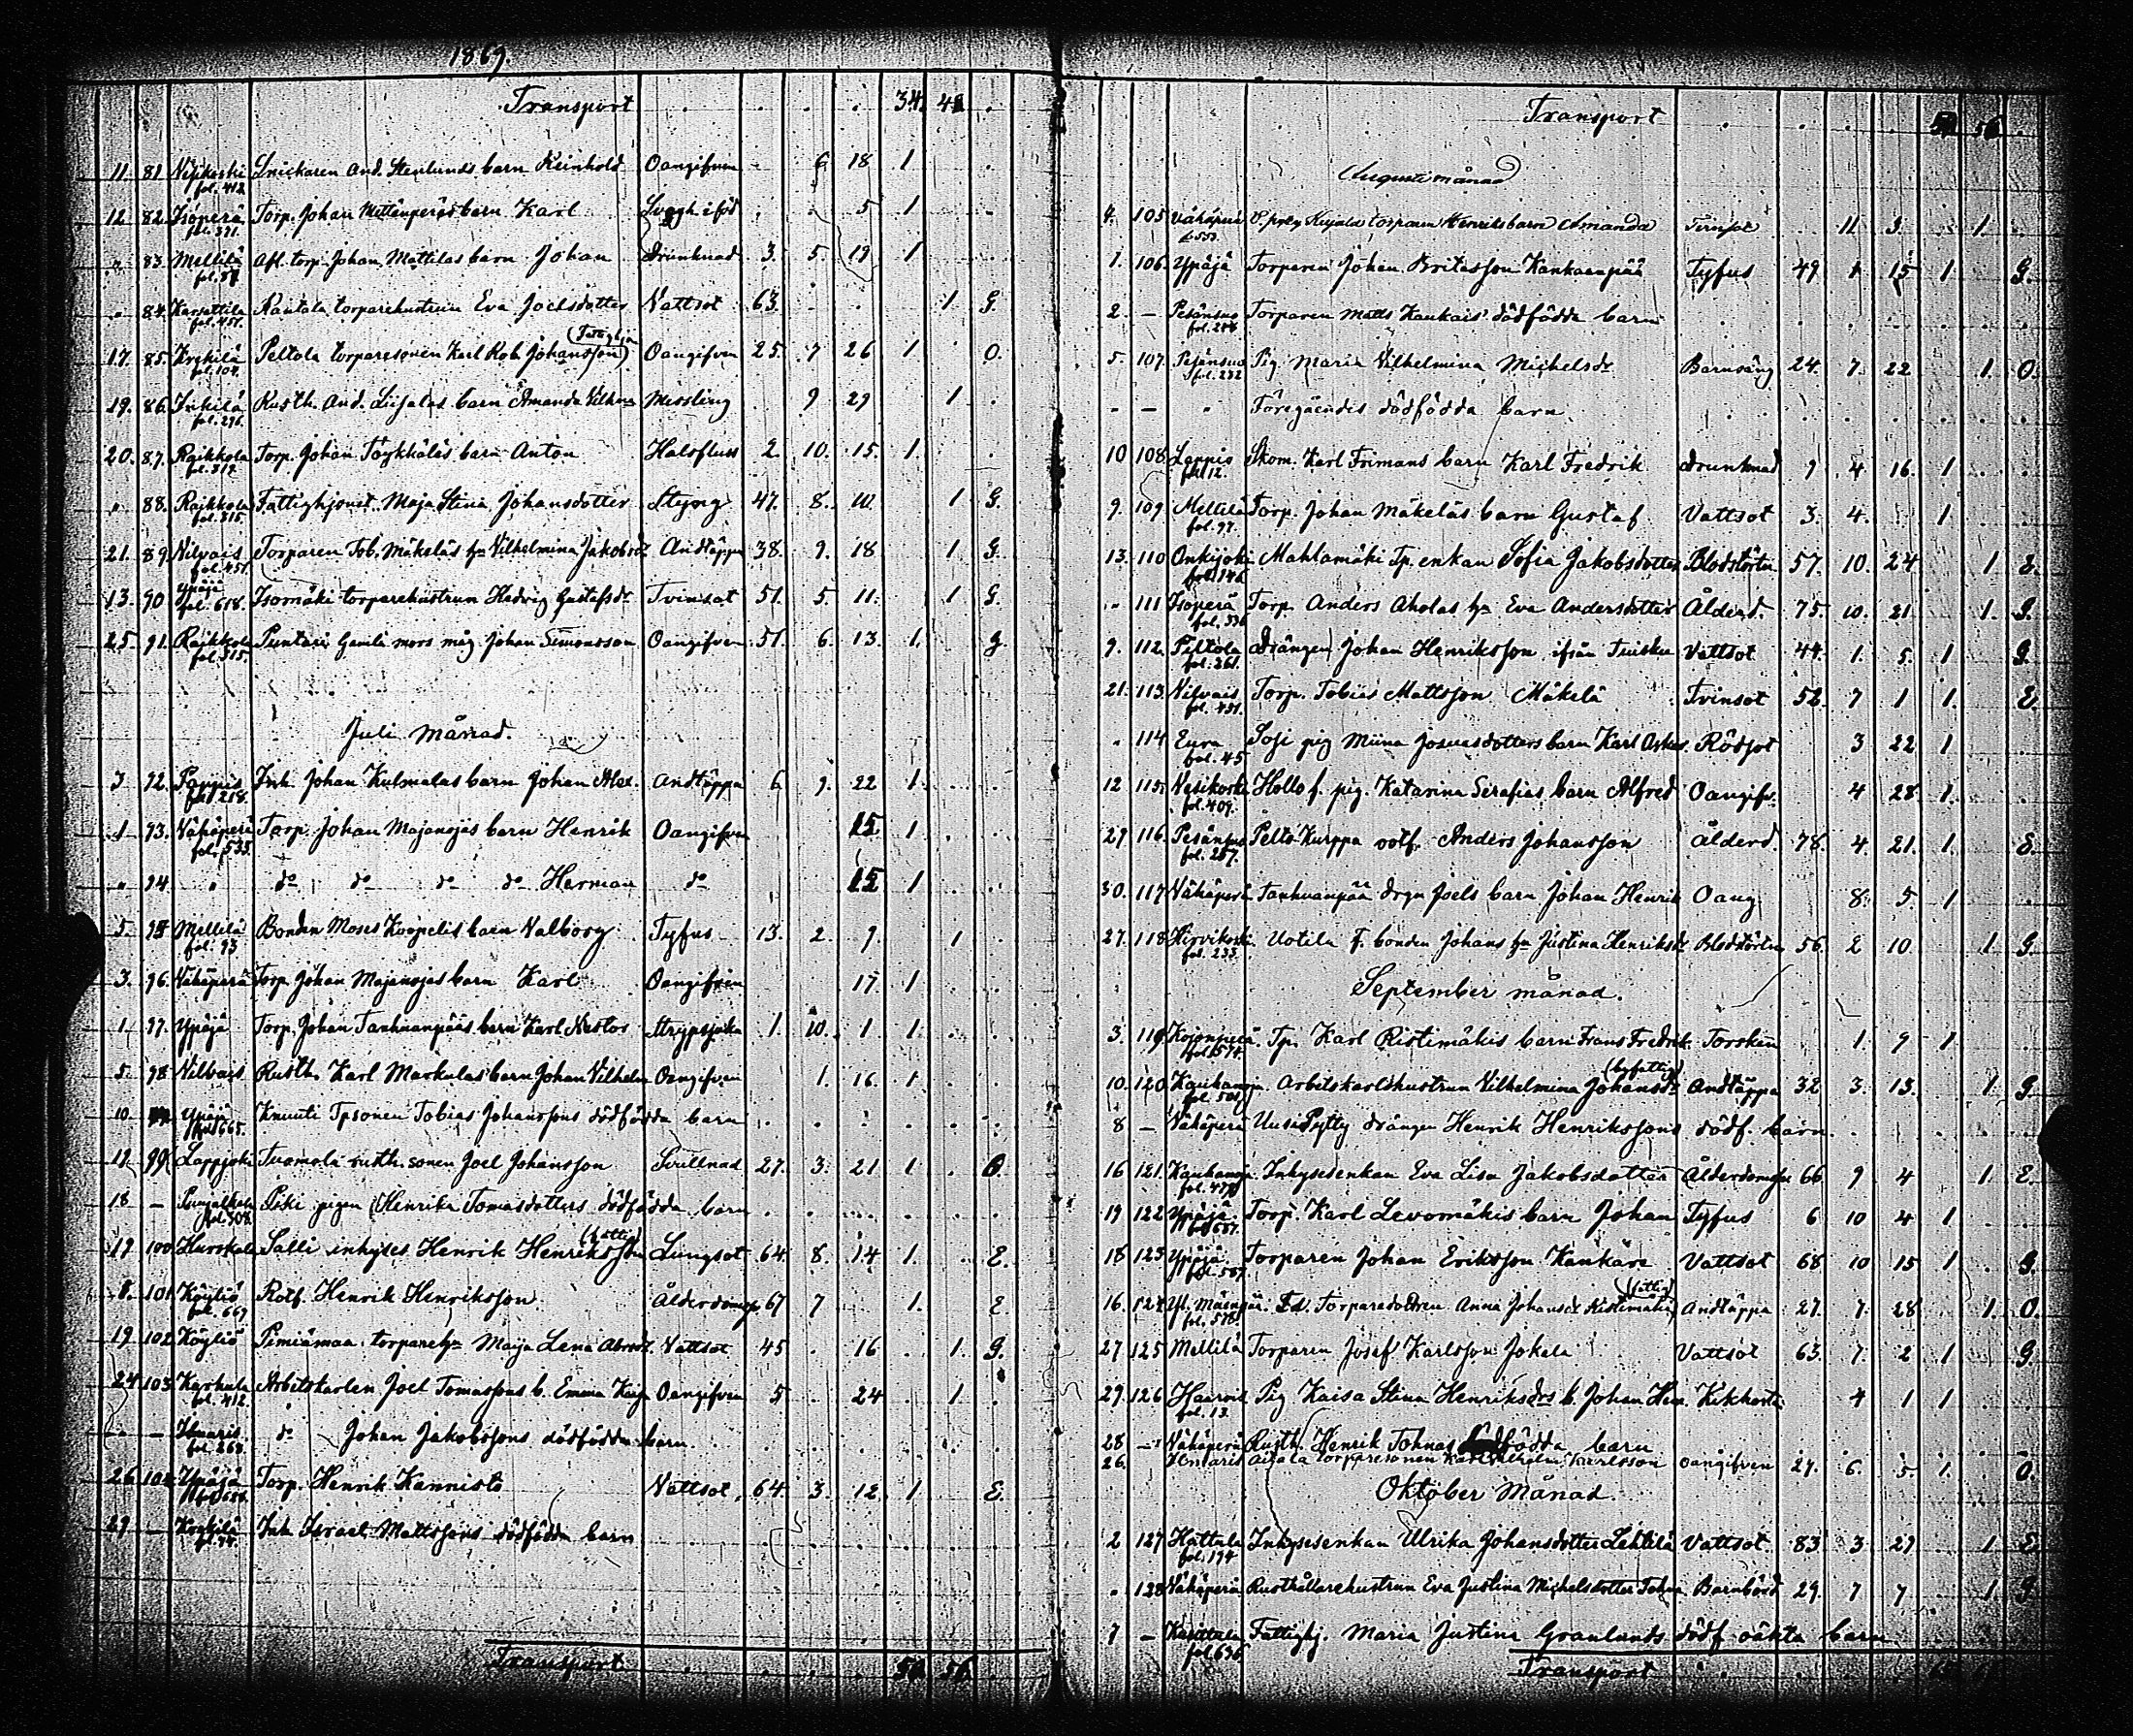 1869.
Transport . . . . 34. 42 .
11. 81 Nisikoski fol. 412 Snickaren And. Stenlunds barn Reinhold Oangifven 6 18 1
12. 82. Isoperä fol. 391. Torp. Johan Mettänperäs barn Karl 5 1
" 83. Mellilä Afl. torp. Johan Mattilas barn Johan Drunknad 3. 5. 19 1
" 84. Karsattila fol. 451. Rautala torparehustrun Eva Joelsdotter Vattsot 63. 1 G.
17. 85. Krekilä fol. 104. Peltola torparesonen Karl Rob. Johansson (Fattighjon) Oangifven 25. 7 26 1 O.
19. 86. Inkilä fol. 296. Rusth. And. Liisalas barn Amanda Vilhma Messling 9 29 1
20. 87. Raikkola fol. 319. Torp. Johan Töykkäläs barn Anton Halsfluss 2 10. 15. 1
" 88. Raikkola fol. 315. Fattighjonet Maja Stina Johansdotter Styng 47. 8. 10. 1 G.
21. 89 Nilvais fol. 451. Torparen Tob. Mäkeläs h:u Vilhelmina Jakobsd: Andtäppa 38. 9. 18 1 G.
13. 90 Ypäjä fol. 618. Isomäki torparehustrun Hedvig Gustafsdr Tvinsot 51. 5. 11. 1 G.
25. 91. Raikkola fol. 315. Puntari Gamli mors måg Johan Simonsson Oangifven 51 6. 13. 1. G.
Juli Månad.
3 92. Pappis fol. 218. Inh. Johan Kulmalas barn Johan Alex. Andtäppa 6 9. 22 1.
1 93. Vähäperä fol. 535. Torp. Johan Majanojas barn Henrik Oangifven 15 1
" 94 " do do do do Herman do 15 1
5. 95 Mellilä fol. 93 Bonden Moses Knopelis barn Valborg Tyfus 13. 2. 9. 1
3. 96. Vähäperä Torp. Johan Majanojas barn Karl Oangifven 17. 1
1. 97. Ypäjä Torp. Johan Tanhuanpääs barn Karl Nestor Strypsjuka 1. 10. 1 1.
5. 98. Nilvais Rusth. Karl Markulas barn Johan Vilhelm Oangifven 1. 16. 1
10. Ypäjä fol. 665. Knuuti Tpsonen Tobias Johanssons dödfödda barn
12 99. Lappjoki Tuomola rusth. sonen Joel Johansson Svullnad 27. 3. 21 1
18 — fol. 508. Piski pigan Henrika Tomasdotters dödfödda barn
19 100. Hurskala Salli inhyses Henrik Henriksson (fattig) Lungsot 64. 8. 14. 1. E.
8. 101. Köyliö fol. 669 Rotf. Henrik Henriksson Ålderdomsv 67 7 1. E
19 102. Köyliö Pimiämaa torpareh:u Maija Lena Vattsot 45 16 1. G.
24 103. Karhula fol. 412. Arbetskarlen Joel Tomassons b. Emma Oangifven 5 24 1
— Ilmaris fol. 263. do Johan Jakobssons dödfödda barn
26 104. Ypäjä Torp. Henrik Kannisto Vattsot 64. 3. 12. 1 E.
29 — Krekilä fol. 94. Inh. Israel Mattssons dödfödda barn
Transport . . . . 56
Transport . . . . 56
Augusti månad
4. 105 Vähäperä torparen Henriks barn Amanda Tvinsot 11 3. 1.
1. 106. Ypäjä Torparen Johan Britasson Kankaanpää Tyfus 49 1 15 1 G.
2. — Pesänsuo Torparen Matts Kaukais dödfödda barn
5. 107. Pesänsuo fol. 232 Pig. Maria Vilhelmina Michelsdr Barnsäng 24. 7. 22 1. O.
" — " Föregåendes dödfödda barn
10 108. Lappis fol. 12. Skom. Karl Frimans barn Karl Fredrik Drunknad 9 4 16. 1
9. 109 Mellilä fol. 97. Torp. Johan Mäkeläs barn Gustaf Vattsot 3. 4. 1
13. 110 Onkijoki fol. 142 Mahlamäki Tp. enkan Sofia Jakobsdotter Blodstörtn 57. 10. 24 1 E.
" 111 Isoperä fol. 336 Torp. Anders Aholas h:u Eva Andersdotter Ålderd. 75. 10. 21 1. G.
9. 112. Peltola fol. 261. Drängen Johan Henriksson ifrån Tuisku Vattsot 44. 1. 5. 1 G.
21. 113. Nilvais fol. 451. Torp. Tobias Mattsson Mäkelä Tvinsot 52. 7 1 1. E
" 114 Eura fol. 45 Sofi pig Miina Josuasdotters barn Karl Oskar. Rödsot 3 22 1
12 115. Vesikoski fol. 409. Hollo f. pig. Katarina Serafias barn Alfred Oangifv. 4 28 1.
29 116. Pesänsuo fol. 257. Pelto Kurppa rotf. Anders Johansson Ålderd. 78. 4. 21. 1. E.
30. 117 Vähäperä Tanhuanpää drgn Joels barn Johan Henrik Oang 8. 5. 1
27. 118 Hirvikoski fol. 233. Uotila f. bonden Johans h:u Justina Henriksd: Blodstörtn 56. 2 10. 1. G.
September månad.
3. 119 Kojonperä fol. 574. Tp. Karl Ristimäkis barn Frans Fredrik. Torsken 1. 9 1
10. 120 Kauhanoja fol. 501 Arbetskarlshustrun Vilhelmina Johansdr (byfattig) Andtäppa 32 3. 13. 1. G.
8 — Vähäperä Uusi Pytty drängen Henrik Henrikssons dödf. barn.
16 121. Kauhanoja fol. 479 Inhysesenkan Eva Lisa Jakobsdotter Ålderdomsv 66 9 4 1. E.
19 122 Ypäjä fol. 657. Torp. Karl Levomäkis barn Johan Tyfus 6 10 4 1
18 123 Ypäjä fol. 587. Torparen Johan Eriksson Kankare Vattsot 68 10 15 1 G.
16. 124 fol. 578. Torparedottren Anna Johansdr Ristimäki (fattig) Andtäppa 27. 7. 28 1. O.
27 125 Mellilä Torparen Josef Karlsson Jokela Vattsot 63. 7. 2 1 G.
29. 126 fol. 13. Pig Kaisa Stina Henriksdrs b. Johan Hen. Kikhosta 4 1 1
28 — Vähäperä Rusth. Henrik Tohnas dödfödda barn
26. Ilmaris torparesonen Karl Vilhelm Karlsson Oangifven 27. 6. 5. 1. O.
Oktober Månad.
2 127 Hattula fol. 194 Inhysesenkan Ulrika Johansdotter Lehtilä Vattsot 83 3 27 1. E.
" 128 Vähäperä Rusthållarehustrun Eva Justina Michelsdotter Tohna Barnbörd 29. 7 7 1. G
7 — fol. 696 Fattighj. Maria Justina Granlunds dödf. oäkta barn
Transport